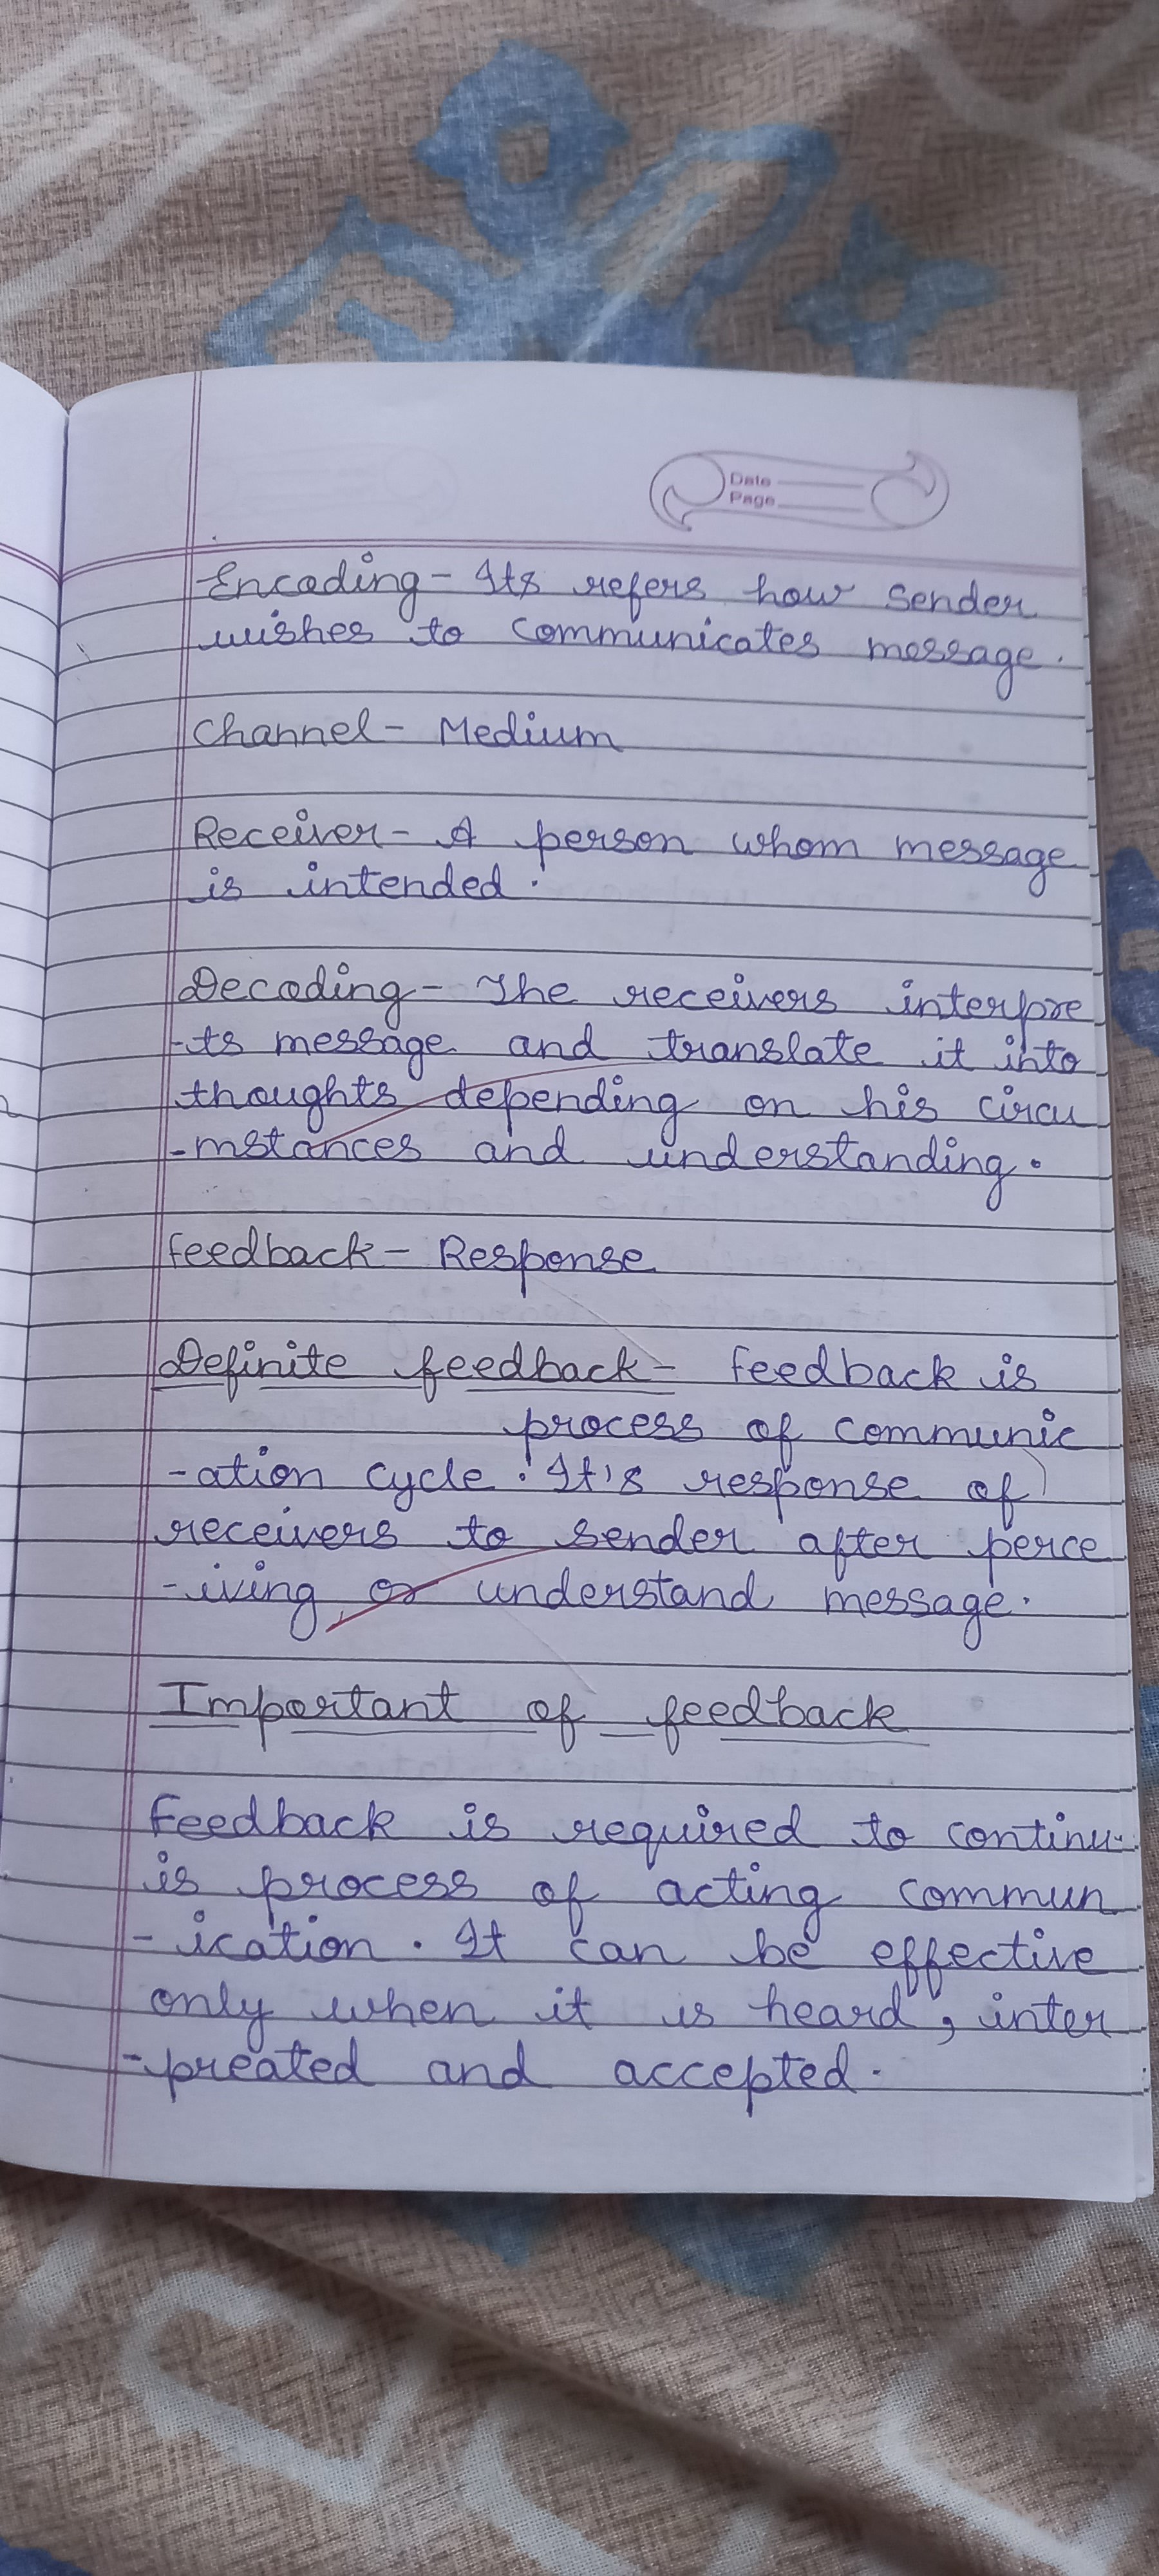 Date
Page
Encoding - Its refers how sender
wishes to communicates message.
Channel - Medium
Receiver - A person whom message
is intended.
Decoding - The receivers interpre
-ts message and translate it into
thoughts depending on his circu
-mstances and understanding.
feedback - Response
Definite feedback - feedback is
process of communic
-ation cycle. It's response of
receivers to sender after perce
-iving or understand message.
Important of feedback
Feedback is required to continu
is process of acting commun
-ication. It can be effective
only when it is heard, inter
-preated and accepted.